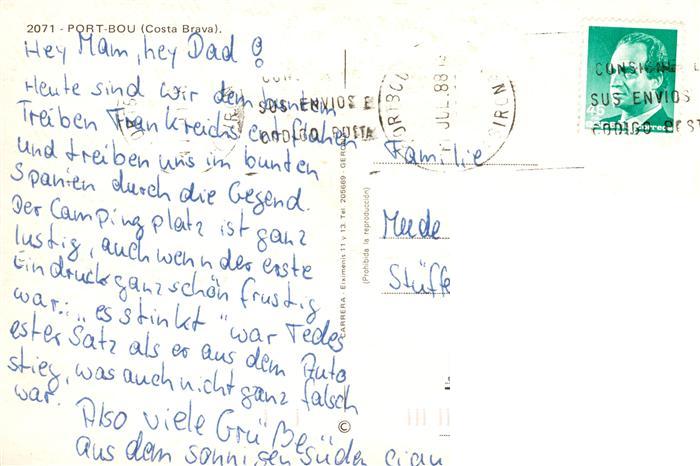 2071 - PORT-BOU (Costa Brava).
Hey Mam, hey Dad!
Heute sind wir dem buntem
Treiben Frankreichs entflohen
und treiben uns im bunten
Spanien durch die Gegend.
Der Campingplatz ist ganz
lustig, auch wenn der erste
Eindruck ganz schön frustig
war: "es stinkt" war Tedes
ester Satz als er aus dem Auto
stieg, was auch nicht ganz falsch
war.
Also viele Grüße
aus dem sonnigen Süden ciau
CARRERA - Eiximenis 11 y 13. Tel. 205669 - GERO
(Prohibida la reproducción)
©
Familie
Meede
Stüffe
PORTBOU
JUL 88
GIRON
CONSIGNE
SUS ENVIOS E
CODIGO POSTA
CONSIGNE L
SUS ENVIOS
CODIGO POST
correos